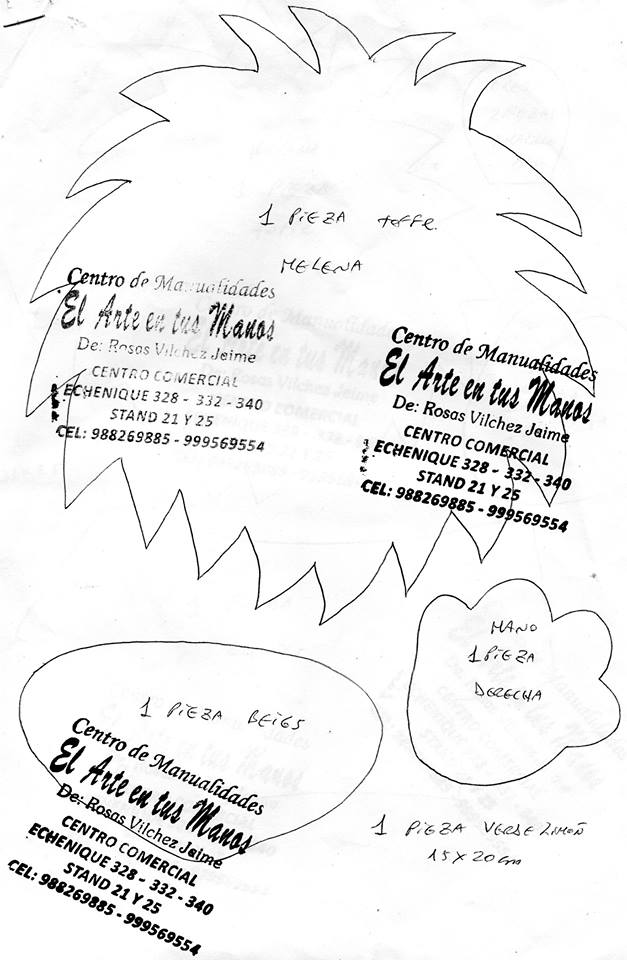 1 PIEZA toffe.
MELENA
Centro de Manualidades
El Arte en tus Manos
De: Rosas Vilchez Jaime
CENTRO COMERCIAL
ECHENIQUE 328 - 332 - 340
STAND 21 Y 25
CEL: 988269885 - 999569554
Centro de Manualidades
El Arte en tus Manos
De: Rosas Vilchez Jaime
CENTRO COMERCIAL
ECHENIQUE 328 - 332 - 340
STAND 21 Y 25
CEL: 988269885 - 999569554
MANO
1 PIEZA
DERECHA
1 PIEZA BEIGS
Centro de Manualidades
El Arte en tus Manos
De: Rosas Vilchez Jaime
CENTRO COMERCIAL
ECHENIQUE 328 - 332 - 340
STAND 21 Y 25
CEL: 988269885 - 999569554
1 PIEZA VERDE LIMON
15 X 20 cm